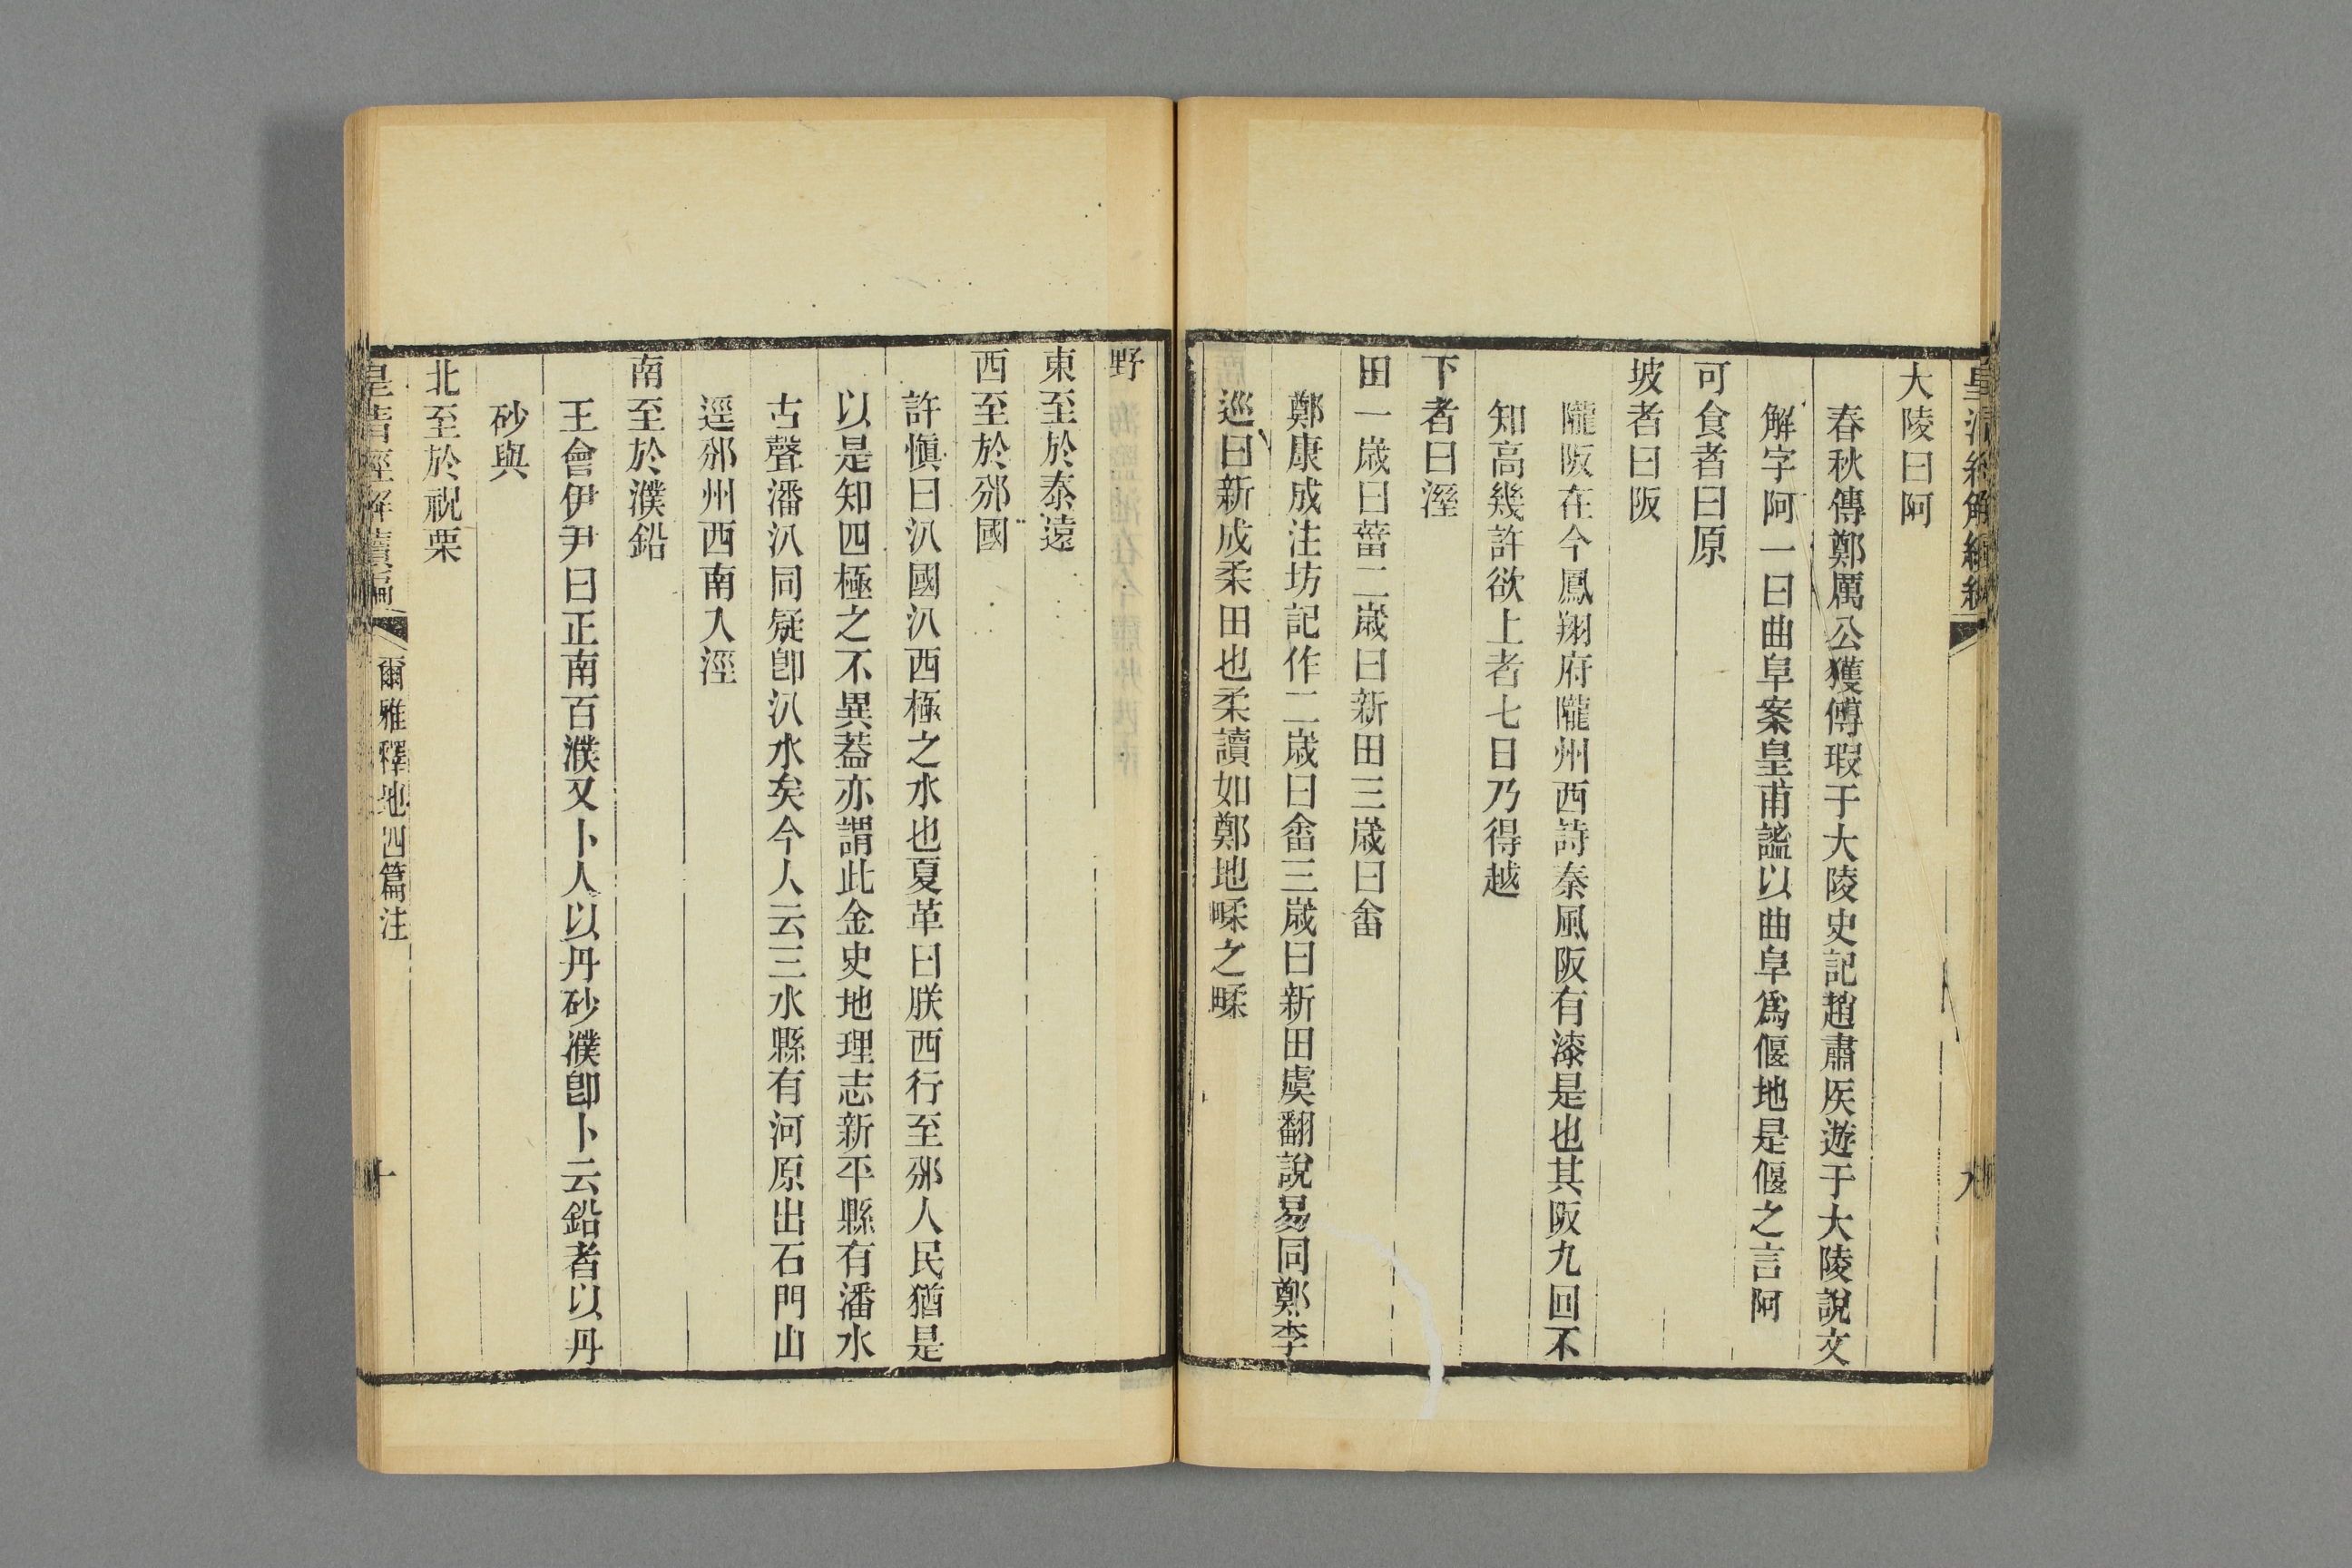 大陵曰阿
春秋傳鄭厲公獲傅瑕于大陵史記趙肅矦遊于大陵說文
解字阿一曰曲阜案皇甫謐以曲阜爲偃地是偃之言阿
可食者曰原
坡者曰阪
隴阪在今鳳翔府隴州西詩秦風阪有漆是也其阪九回不
知高幾許欲上者七日乃得越
下者曰溼
田一歲曰菑二歲曰新田三歲曰畬
鄭康成注坊記作二歲曰畬三歲曰新田虞翻說易同鄭李
巡曰新成柔田也柔讀如鄭地㽥之㽥
野
東至於泰遠
西至於邠國
許愼曰汃國汃西極之水也夏革曰朕西行至邠人民猶是
以是知四極之不異葢亦謂此金史地理志新平縣有潘水
古聲潘汃同疑卽汃水矣今人云三水縣有河原出石門山
逕邠州西南入涇
南至於濮鉛
王會伊尹曰正南百濮又卜人以丹砂濮卽卜云鉛者以丹
砂與
北至於祝栗
皇清經解續編
爾雅釋地四篇注
十